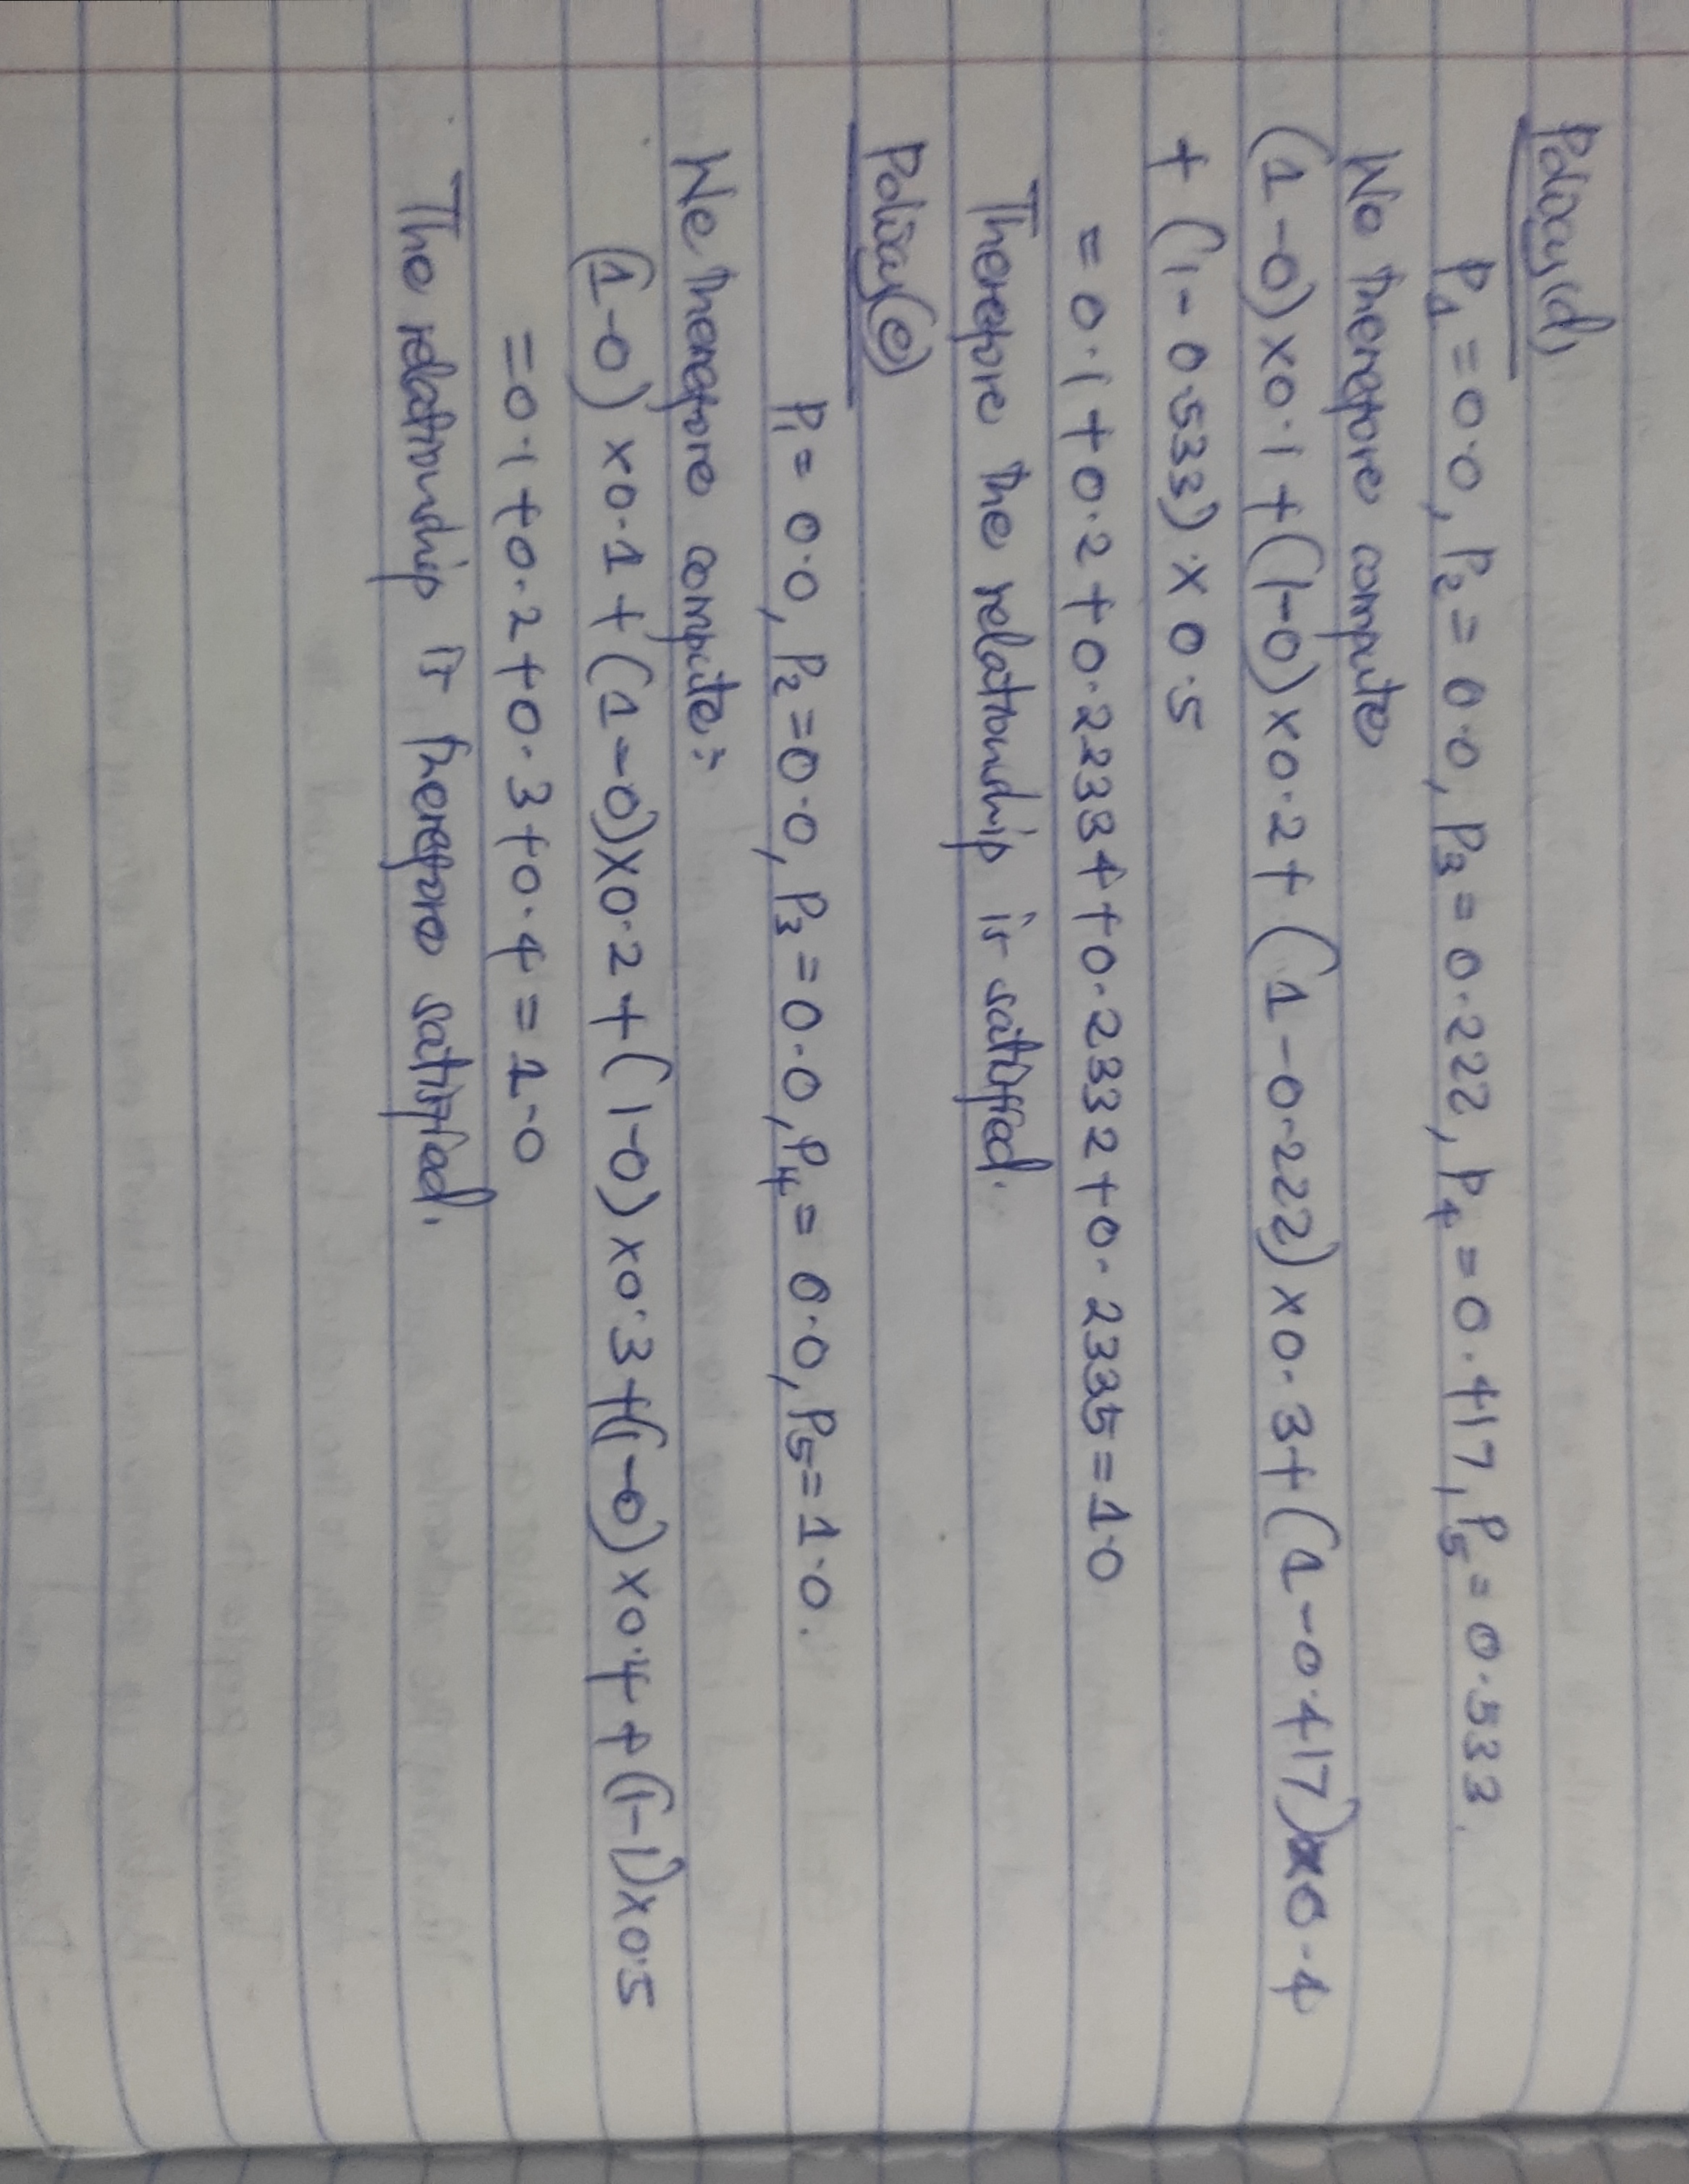 Policy (d)
P1 = 0.0, P2 = 0.0, P3 = 0.222, P4 = 0.417, P5 = 0.533.
We therefore compute
(1-0)×0.1+(1-0)×0.2+(1-0.222)×0.3+(1-0.417)×0.4
+ (1-0.533)×0.5
= 0.1+0.2+0.2334+0.2332+0.2335=1.0
Therefore the relationship is satisfied.
Policy (e)
P1 = 0.0, P2 = 0.0, P3 = 0.0, P4 = 0.0, P5 = 1.0.
We therefore compute:-
(1-0)×0.1+(1-0)×0.2+(1-0)×0.3+(1-0)×0.4+(1-1)×0.5
=0.1+0.2+0.3+0.4=1.0
The relationship is therefore satisfied.